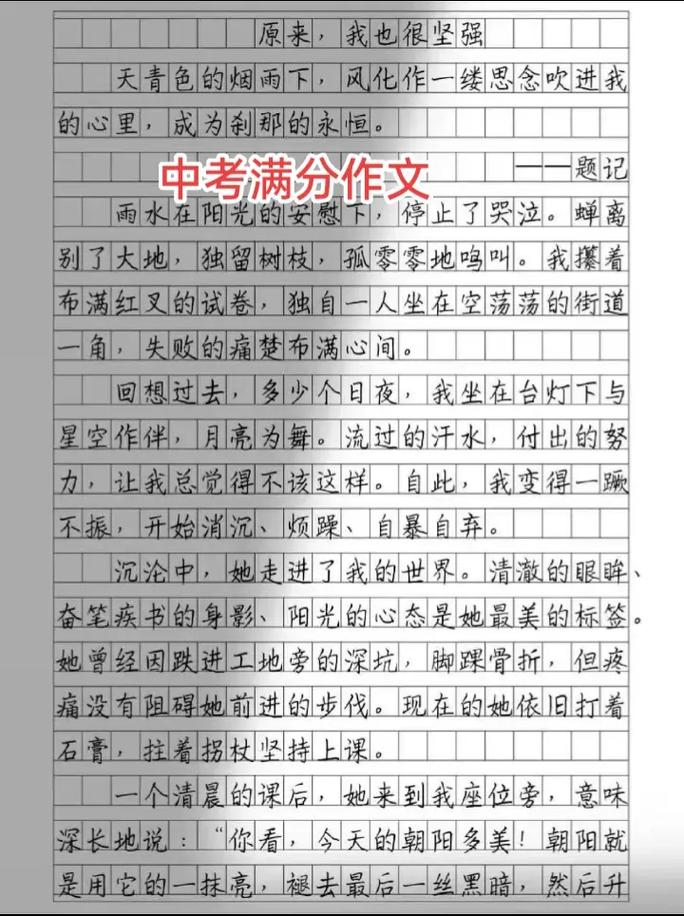 原来，我也很坚强
天青色的烟雨下，风化作一缕思念吹进我
的心里，成为刹那的永恒。
中考满分作文
——题记
雨水在阳光的安慰下，停止了哭泣。蝉离
别了大地，独留树枝，孤零零地鸣叫。我攥着
布满红叉的试卷，独自一人坐在空荡荡的街道
一角，失败的痛楚布满心间。
回想过去，多少个日夜，我坐在台灯下与
星空作伴，月亮为舞。流过的汗水，付出的努
力，让我总觉得不该这样。自此，我变得一蹶
不振，开始消沉、烦躁、自暴自弃。
沉沦中，她走进了我的世界。清澈的眼眸、
奋笔疾书的身影、阳光的心态是她最美的标签。
她曾经因跌进工地旁的深坑，脚踝骨折，但疼
痛没有阻碍她前进的步伐。现在的她依旧打着
石膏，拄着拐杖坚持上课。
一个清晨的课后，她来到我座位旁，意味
深长地说：“你看，今天的朝阳多美！朝阳就
是用它的一抹亮，褪去最后一丝黑暗，然后升